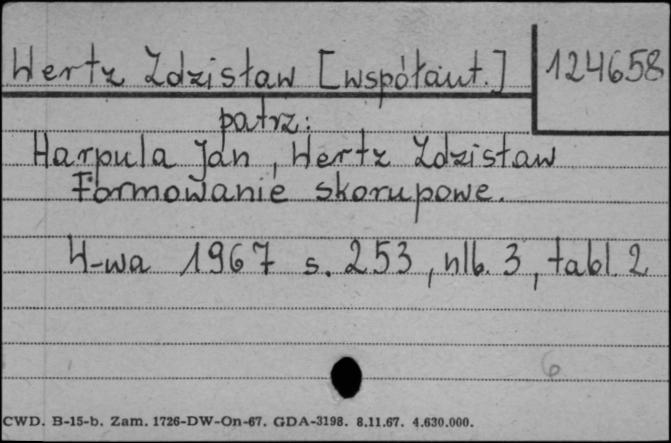 Hertz Zdzisław [współaut.] 124658
patrz:
Harpula Jan, Hertz Zdzisław
Formowanie skorupowe.
W-wa 1967 s. 253, nlb. 3, tabl. 2
6
CWD. B-15-b. Zam. 1726-DW-On-67. GDA-3198. 8.11.67. 4.630.000.